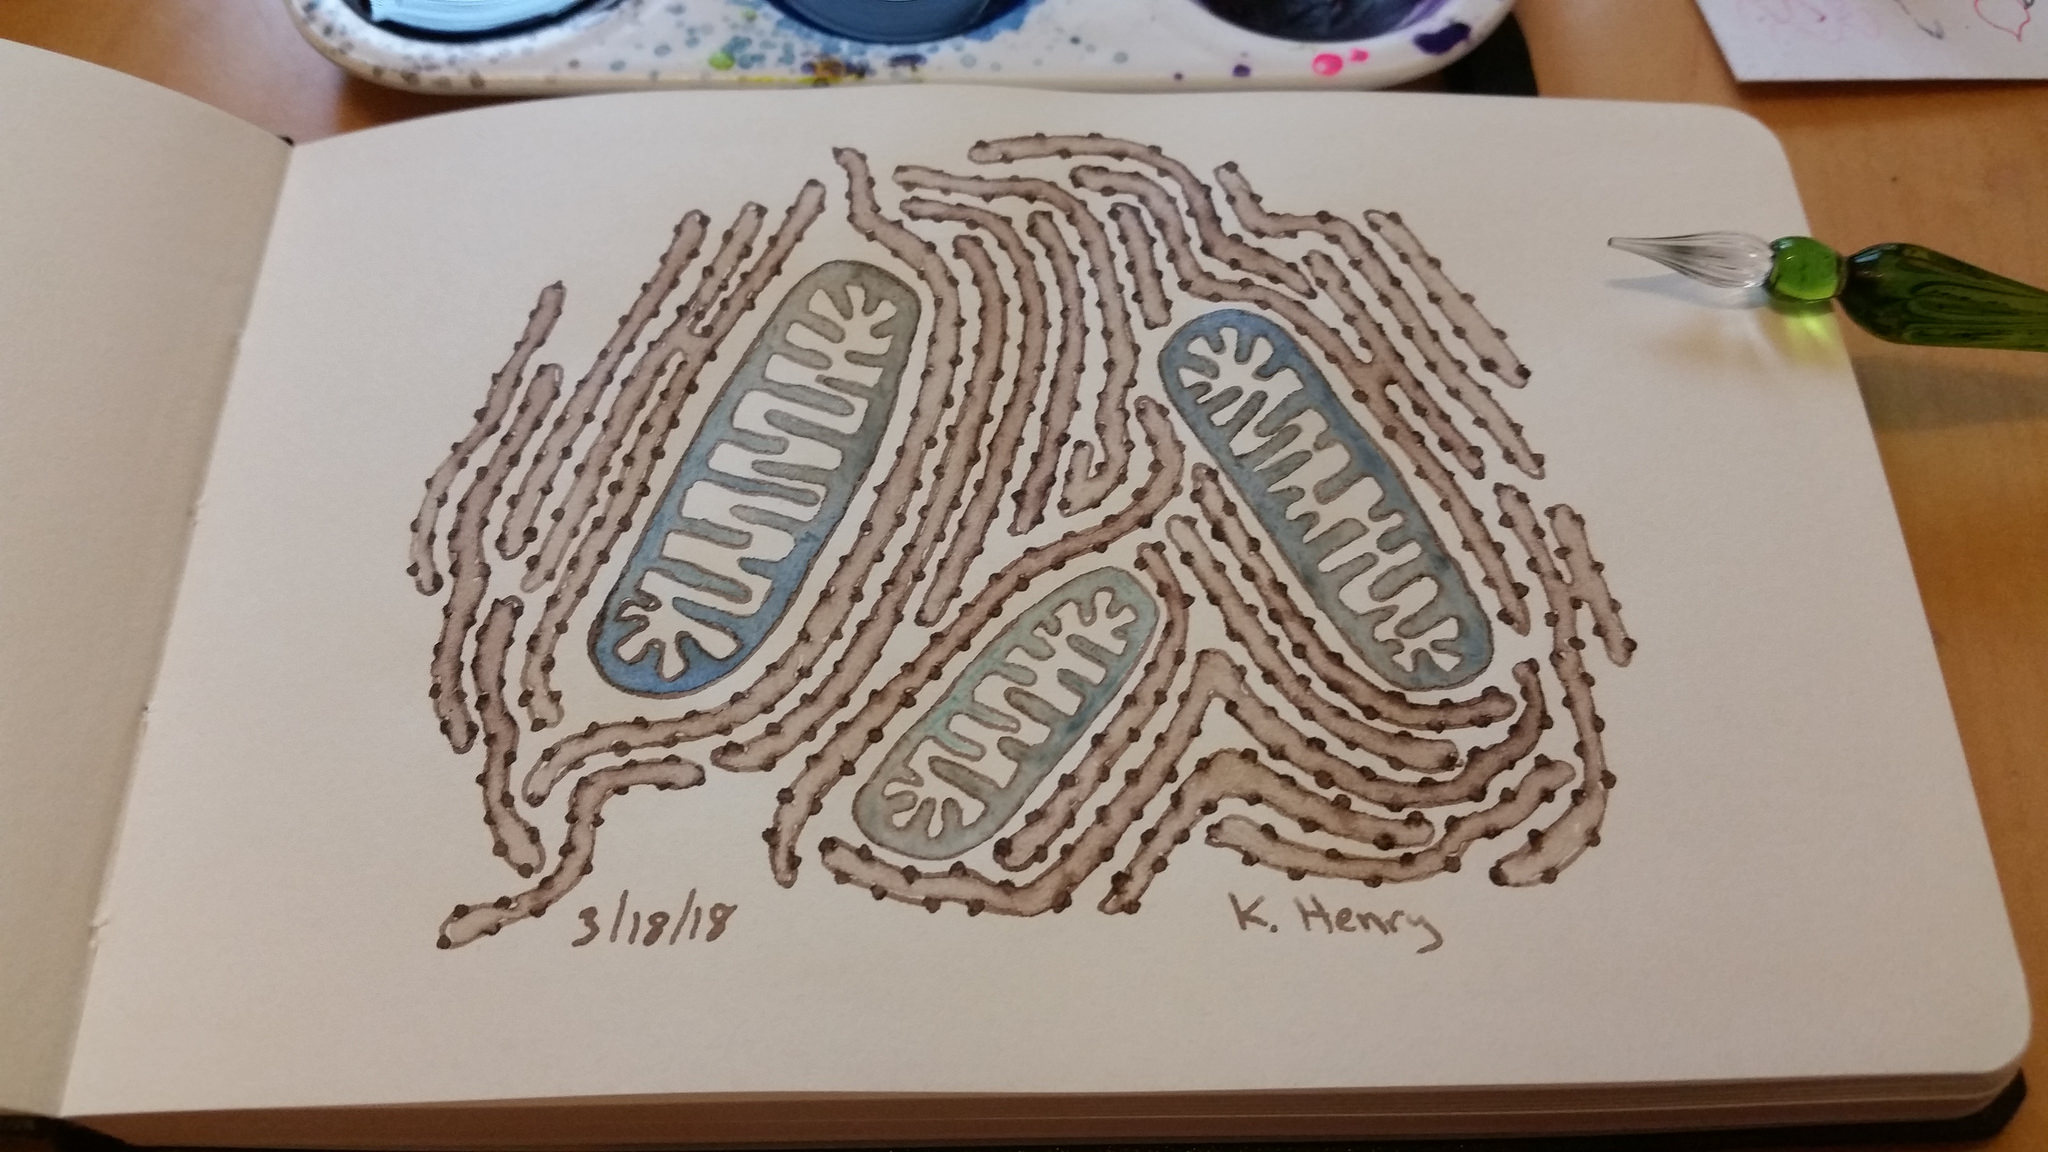 3/18/18 K. Henry